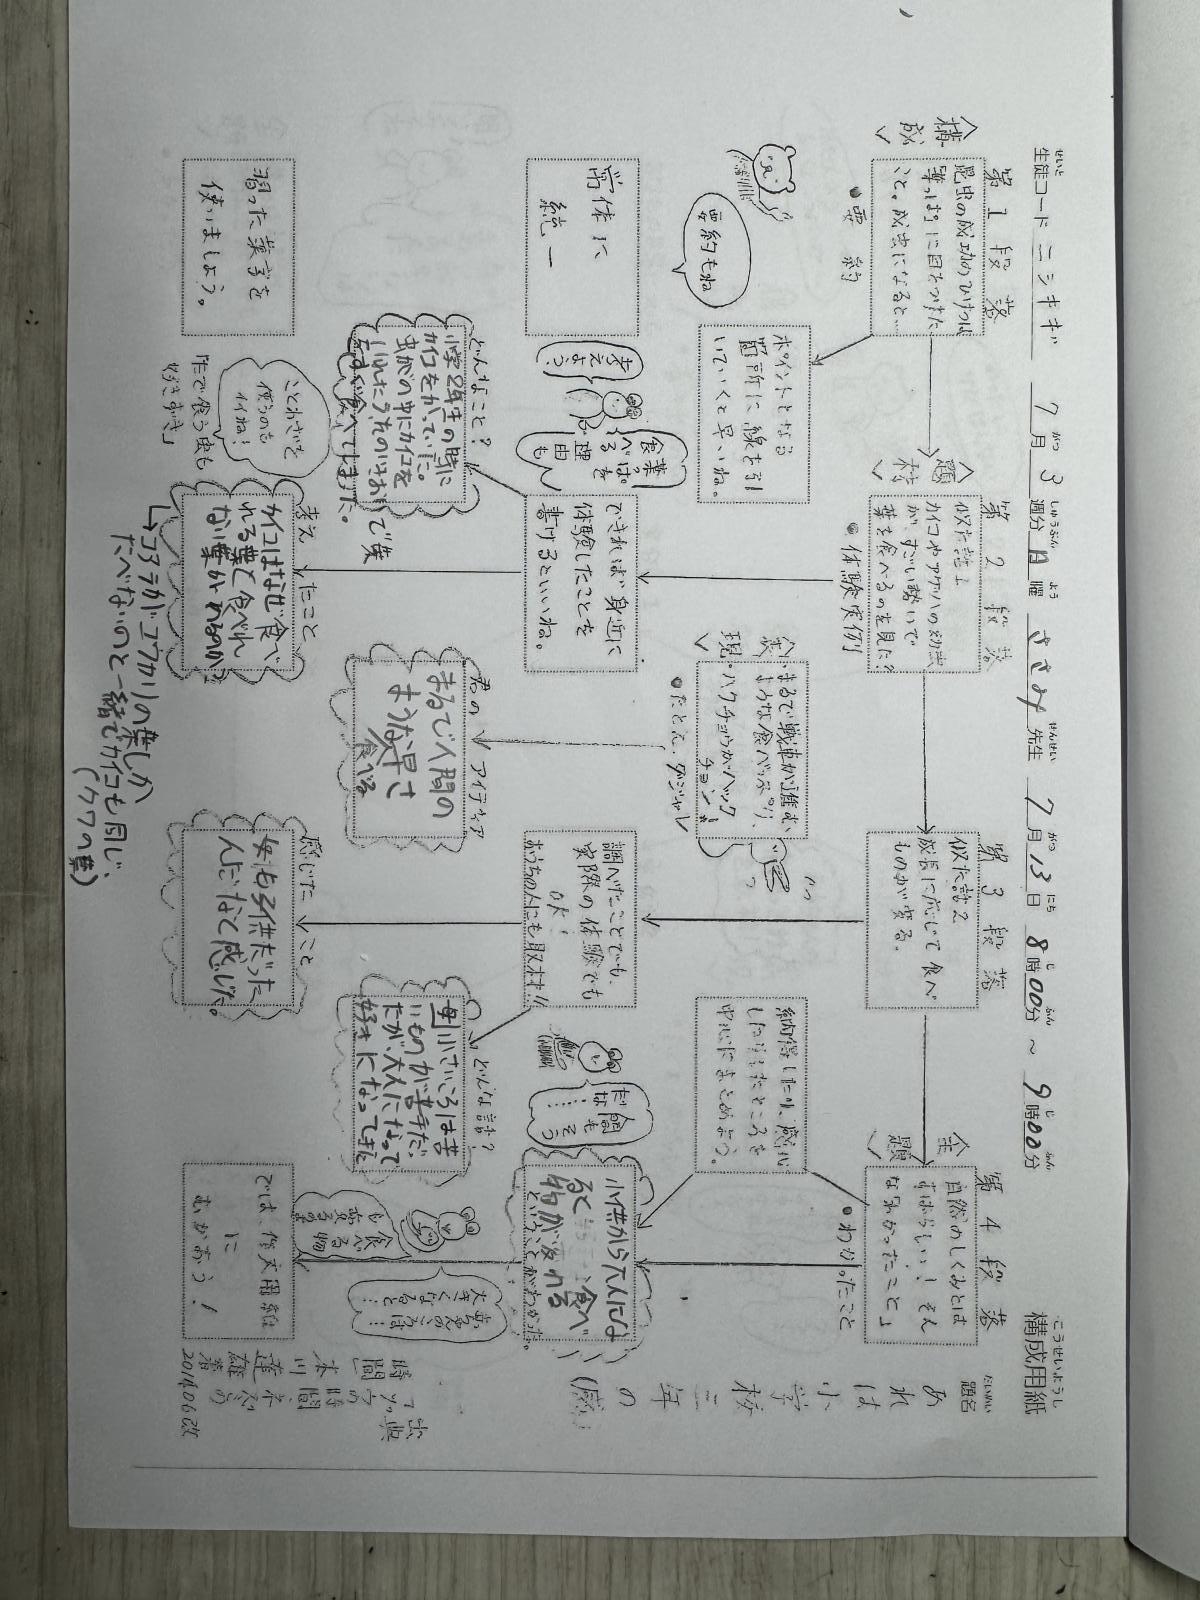 構成用紙
生徒コード ニシキギ 7月3週分 月曜 ささみ先生 7月13日 8時00分 ~ 9時00分
題名
あれは小学校三年の(感)
<構成>
第1段落
昆虫の成功のひけつは
葉っぱに目をつけた
こと。成虫になると…
●要約
要約もね
ポイントとなる
箇所に線を引
いていくと早いね。
常体に
統一
習った漢字を
使いましょう。
<題材>
第2段落
似た話1
カイコやアゲハの幼虫
が、すごい勢いで
葉を食べるのを見た?
●体験実例
できれば身近に
体験したことを
書けるといいね。
考えよう。
葉っぱを
食べる
理由も
どんなこと?
小学2年生の時に
カイコをかっていた。
虫かごの中にカイコを
いれたらものいきおいで葉
をすぐ食べてしまった。
考えたこと
カイコはなぜ食べ
れる葉と食べれ
ない葉があるのか?
↳コアラがユーカリの葉しか
たべないのと一緒でカイコも同じ、
(クワの葉)
ことわざを
使うのも
イイね!
「蓼食う虫も
好きずき」
<表現>
・まるで戦車が進む
ような食べっぷり、
・ハクチョウがハック
チョン!
●たとえ・ダジャレ
君のアイディア
まるで人間の
ような早さ
食べる
第3段落
似た話2
成長に応じて食べ
ものが変る。
調べたことでも、
実際の体験でも
OK!
おうちの人にも取材!!
どんな話?
母小さいころは苦
いものが苦手だ、
だが、大人になって
好きになってきた
感じたこと
母も子供だった
んだなと感じた。
<主題>
第4段落
自然のしくみとは
すばらしい!そん
な「わかったこと」
●わかったこと
納得したり、感心
したりしたところを
中心にまとめよう。
人間も
そう
だな……
小供から大人にな
ると、食べ
物が変われる
ということがわかった。
赤ちゃんのころは…
大きくなると…
食べる物
も変るのよ
では、作文用紙
に
むかおう!
出典
「ゾウの時間ネズミの
時間」
本川達雄著
201406改